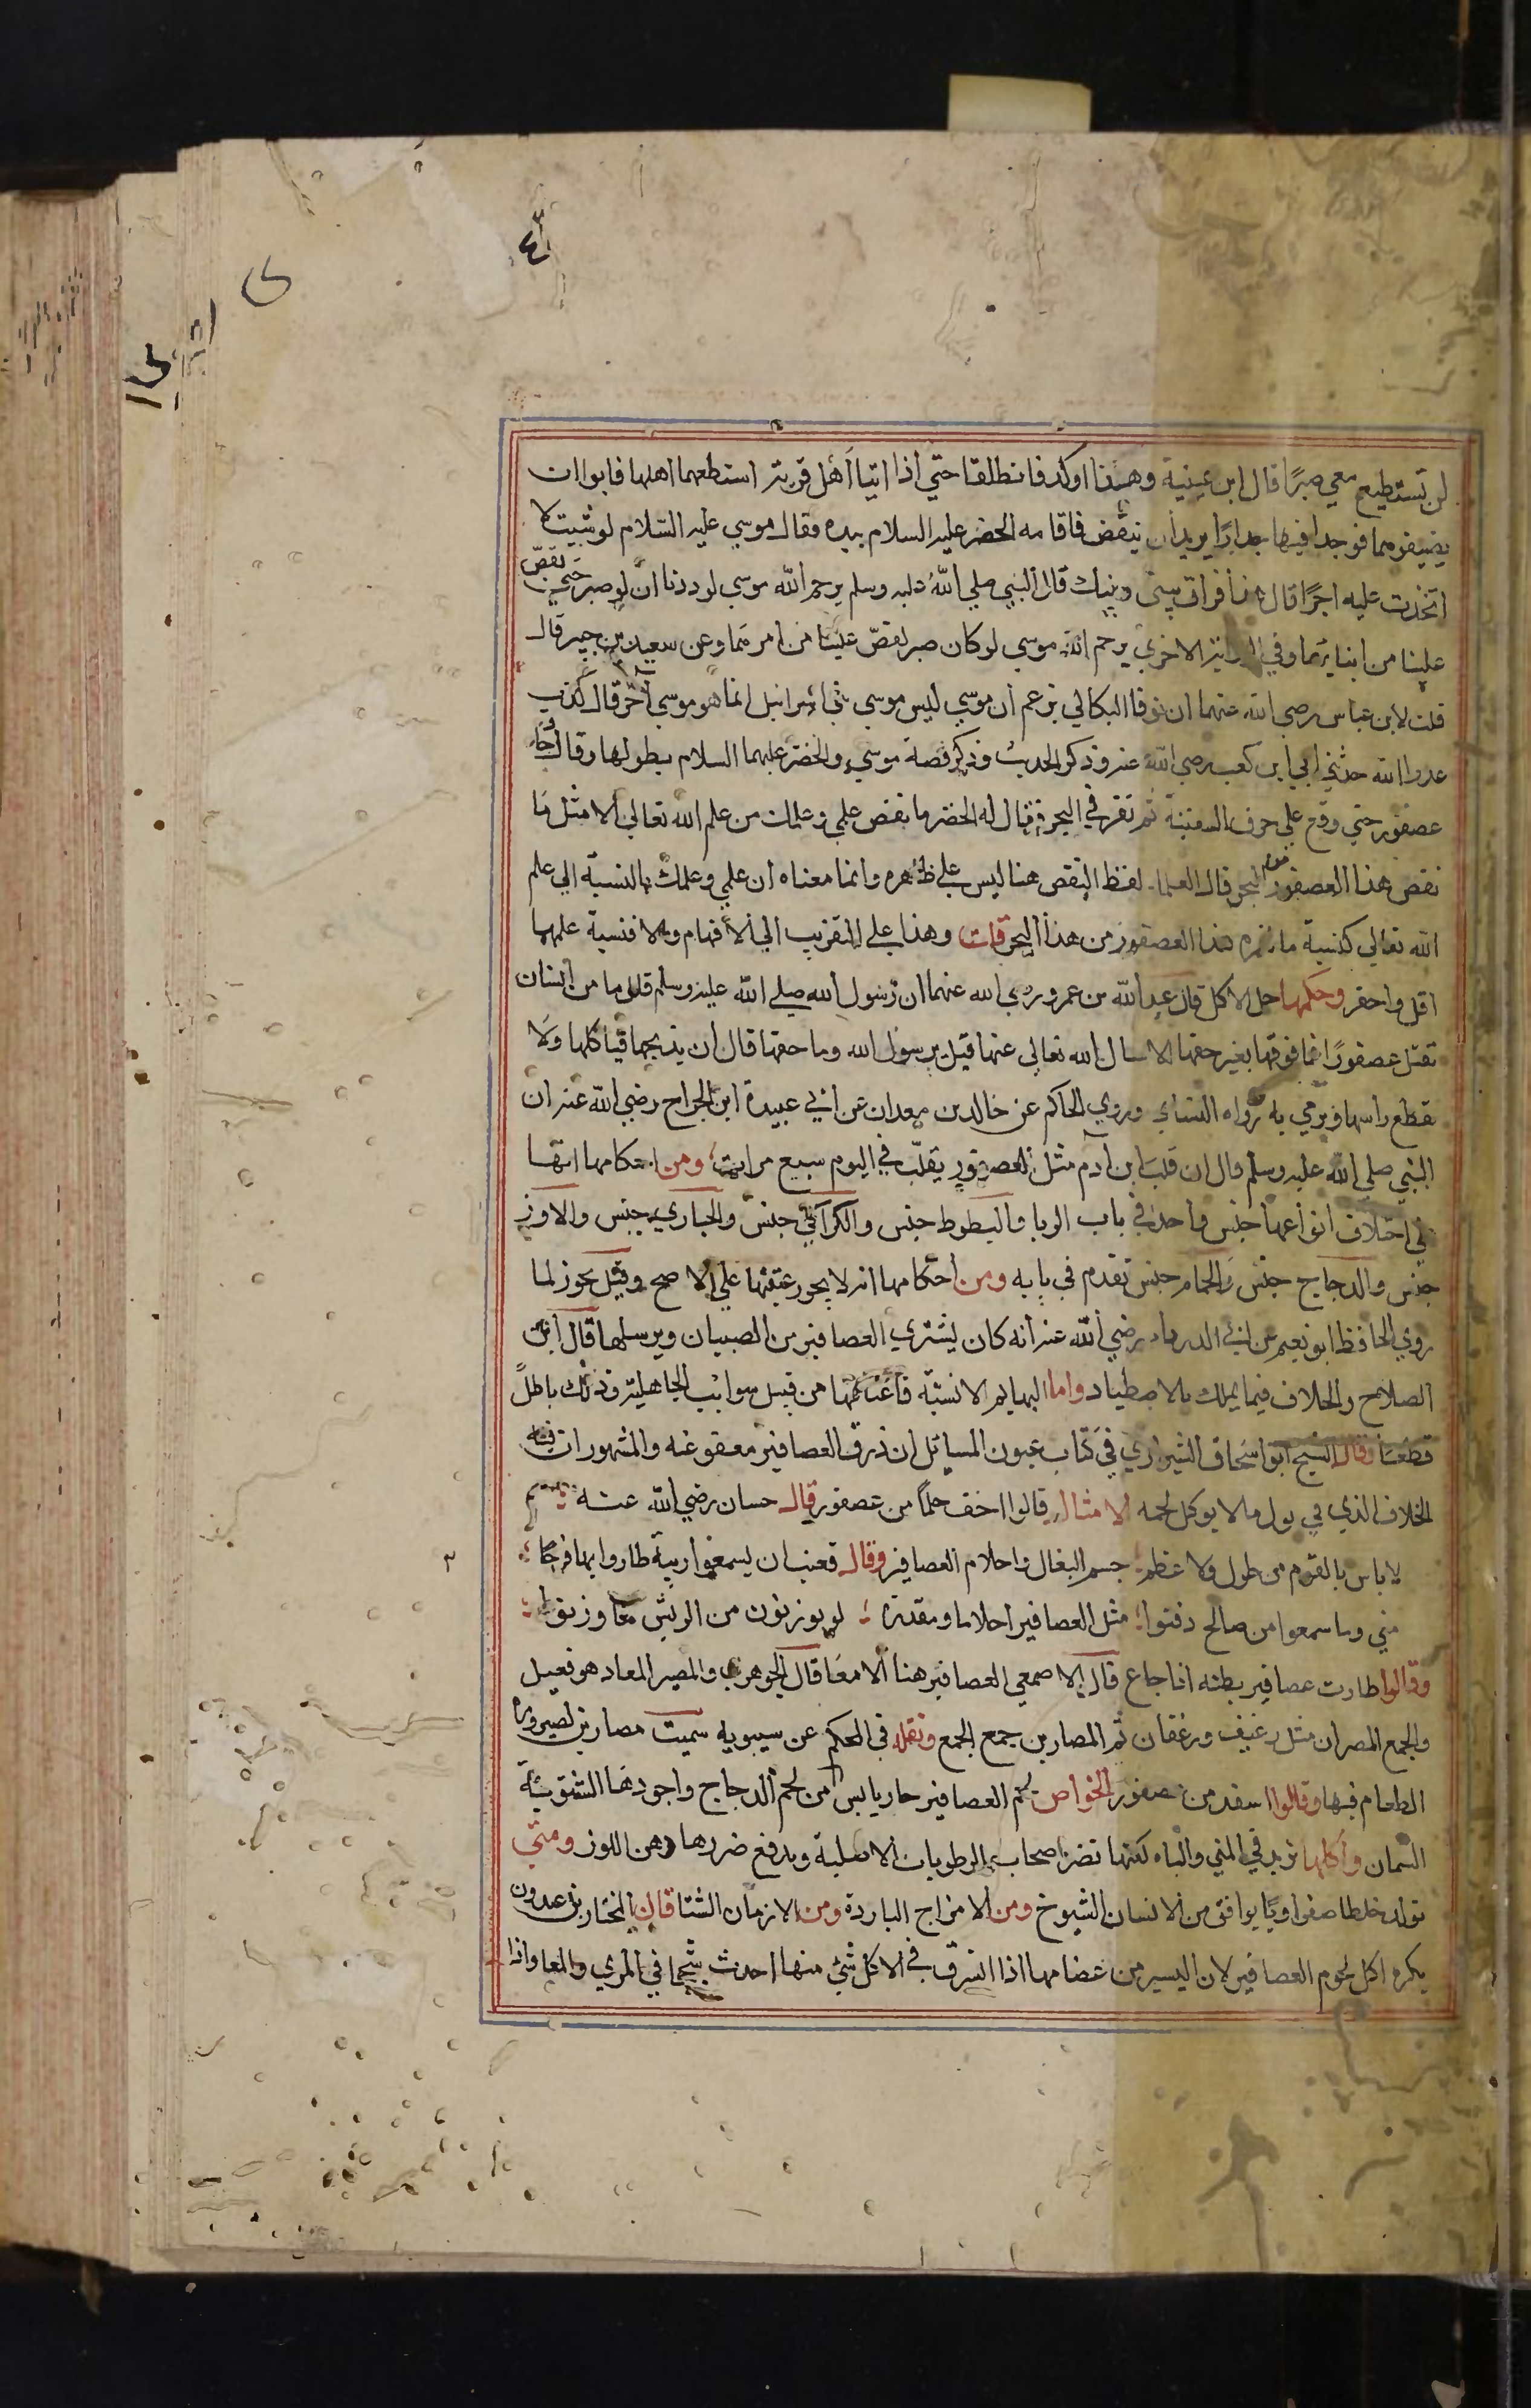 ٤٣
لن تستطيع معي صبرًا قال ابن عيينة وهذا اوكد فانطلقا حتي اذا اتيا أهل قرية استطعما اهلها فابوا ان
يضيفوهما فوجدا فيها جدارًا يريد ان ينقض فاقامه الخضر عليه السلام بيده فقال موسي عليه السلام لو شيت لا
اتخذت عليه اجرًا قال هذا فراق بيني وبينك قال النبي صلي الله عليه وسلم يرحم الله موسي لوددنا ان لو صبر حتي نقصّ
علينا من انبايهما وفي الرواية الاخري يرحم الله موسي لو كان صبر لقصّ علينا من امرهما وعن سعيد بن جبير قال
قلت لابن عباس رضي الله عنهما ان نوفا البكالي يزعم أن موسي ليس موسي بني اسرائيل انما هو موسي آخر قال كذب
عدوا الله حدثني ابي ابن كعب رضي الله عنه وذكر الحديث وذكر قصة موسي والخضر عليهما السلام بطولها وقال جاء
عصفور حتي وقع علي حرف السفينة ثم نقر في البحر فقال له الخضر ما نقص علمي وعلمك من علم الله تعالي الا مثل ما
نقص هذا العصفور من البحر قال العلما لفظ النقص هنا ليس علي ظاهره وانما معناه ان علمي وعلمك بالنسبة الي علم
الله تعالي كنسبة ما نقره هذا العصفور من هذا البحر قلت وهذا علي التقريب الي الافهام والا فنسبة علمهما
اقل واحقر وحكمها حل الاكل قال عبد الله بن عمرو رضي الله عنهما ان رسول الله صلي الله عليه وسلم قال ما من انسان
تقتل عصفورًا فما فوقها بغير حقها الا سال الله تعالي عنها قيل يرسول الله وما حقها قال ان يذبحها فياكلها ولا
يقطع راسها فيرمي به رواه النساي وروي الحاكم عن خالد بن معدان عن ابي عبيدة ابن الجراح رضي الله عنه ان
النبي صلي الله عليه وسلم قال ان قلب ابن آدم مثل العصفور يقلّب في اليوم سبع مرات ومن احكامها انها
علي اختلاف انواعها جنس واحد في باب الربا والبطوط جنس والكراكي جنس والحباري جنس والاوز
جنس والدجاج جنس والحمام جنس تقدم في بابه ومن احكامها انه لا يجوز عتقها علي الاصح وقيل يجوز لما
روي الحافظ ابو نعيم عن ابي الدرداء رضي الله عنه أنه كان يشتري العصافير من الصبيان ويرسلها قال ابن
الصلاح والخلاف فيما يملك بالاصطياد واما البهايم الانسيّة فاعتاقها من قبيل سوايب الجاهلية وذلك باطلً
قطعًا وقال الشيخ ابو اسحاق الشيرازي في كتاب عيون المسايل ان ذرق العصافير معفو عنه والمشهور ان فيه
الخلاف الذي في بول ما لا يوكل لحمه الامثال قالوا اخف حلمًا من عصفور قال حسان رضي الله عنه
لا باس بالقوم من طول ولا عظم جسم البغال واحلام العصافير وقال قعنب ان يسمعوا ريبة طاروا بها فرحًا
مني وما سمعوا من صالح دفنوا مثل العصافير احلاما ومقدرة لو يوزنون من الريش معا وزنوا
وقالوا طارت عصافير بطنه اذا جاع قال الاصمعي العصافير هنا الامعا قال الجوهري والمصير المعا وهو فعيل
والجمع المصران مثل رغيف ورغفان ثم المصارين جمع الجمع ونقله في المحكم عن سيبويه سميت مصارين لصيرورة
الطعام فيها وقالوا اسفد من عصفور الخواص لحم العصافير حار يابس من لحم الدجاج واجودها الشتوية
السمان واكلها يزيد في المني والباه لكنها تضر اصحاب الرطوبات الاصلية ويدفع ضررها دهن اللوز ومتي
تولد خلطا صفراويًا يوافق من الانسان الشيوخ ومن الامزاج الباردة ومن الازمان الشتا قال المختار بن عبدون
يكره اكل لحوم العصافير لان اليسير من عضامها اذا اشرق في الاكل شيء منها احدث شجا في المري والمعا واذا